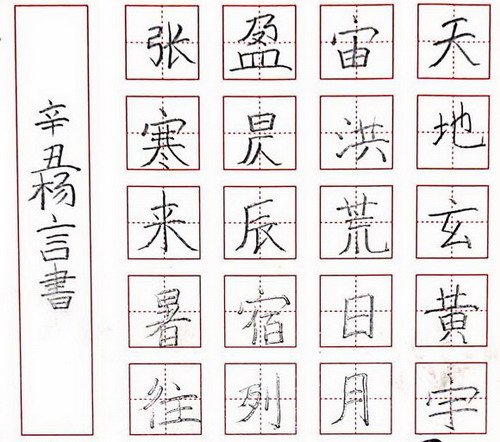 天地玄黃宇
宙洪荒日月
盈昃辰宿列
张寒来暑往
辛丑杨言書